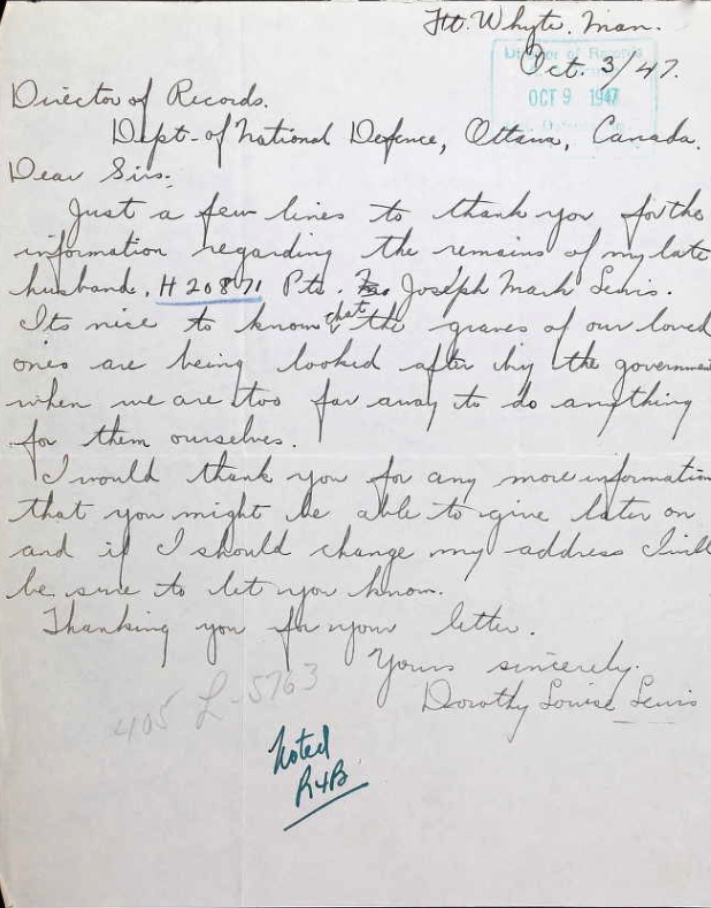 Ft. Whyte. Man.
Oct. 3/47.
Director of Records
OCT 9 1947
Director of Records.
Dept. of National Defence, Ottawa, Canada.
Dear Sirs:
Just a few lines to thank you for the
information regarding the remains of my late
husband, H 20871 Pte. Joseph Mark Lewis.
Its nice to know that the graves of our loved
ones are being looked after by the government
when we are too far away to do anything
for them ourselves.
I would thank you for any more information
that you might be able to give later on
and if I should change my address I will
be sure to let you know.
Thanking you for your letter.
Yours sincerely.
Dorothy Louise Lewis
405 L-5763
Noted